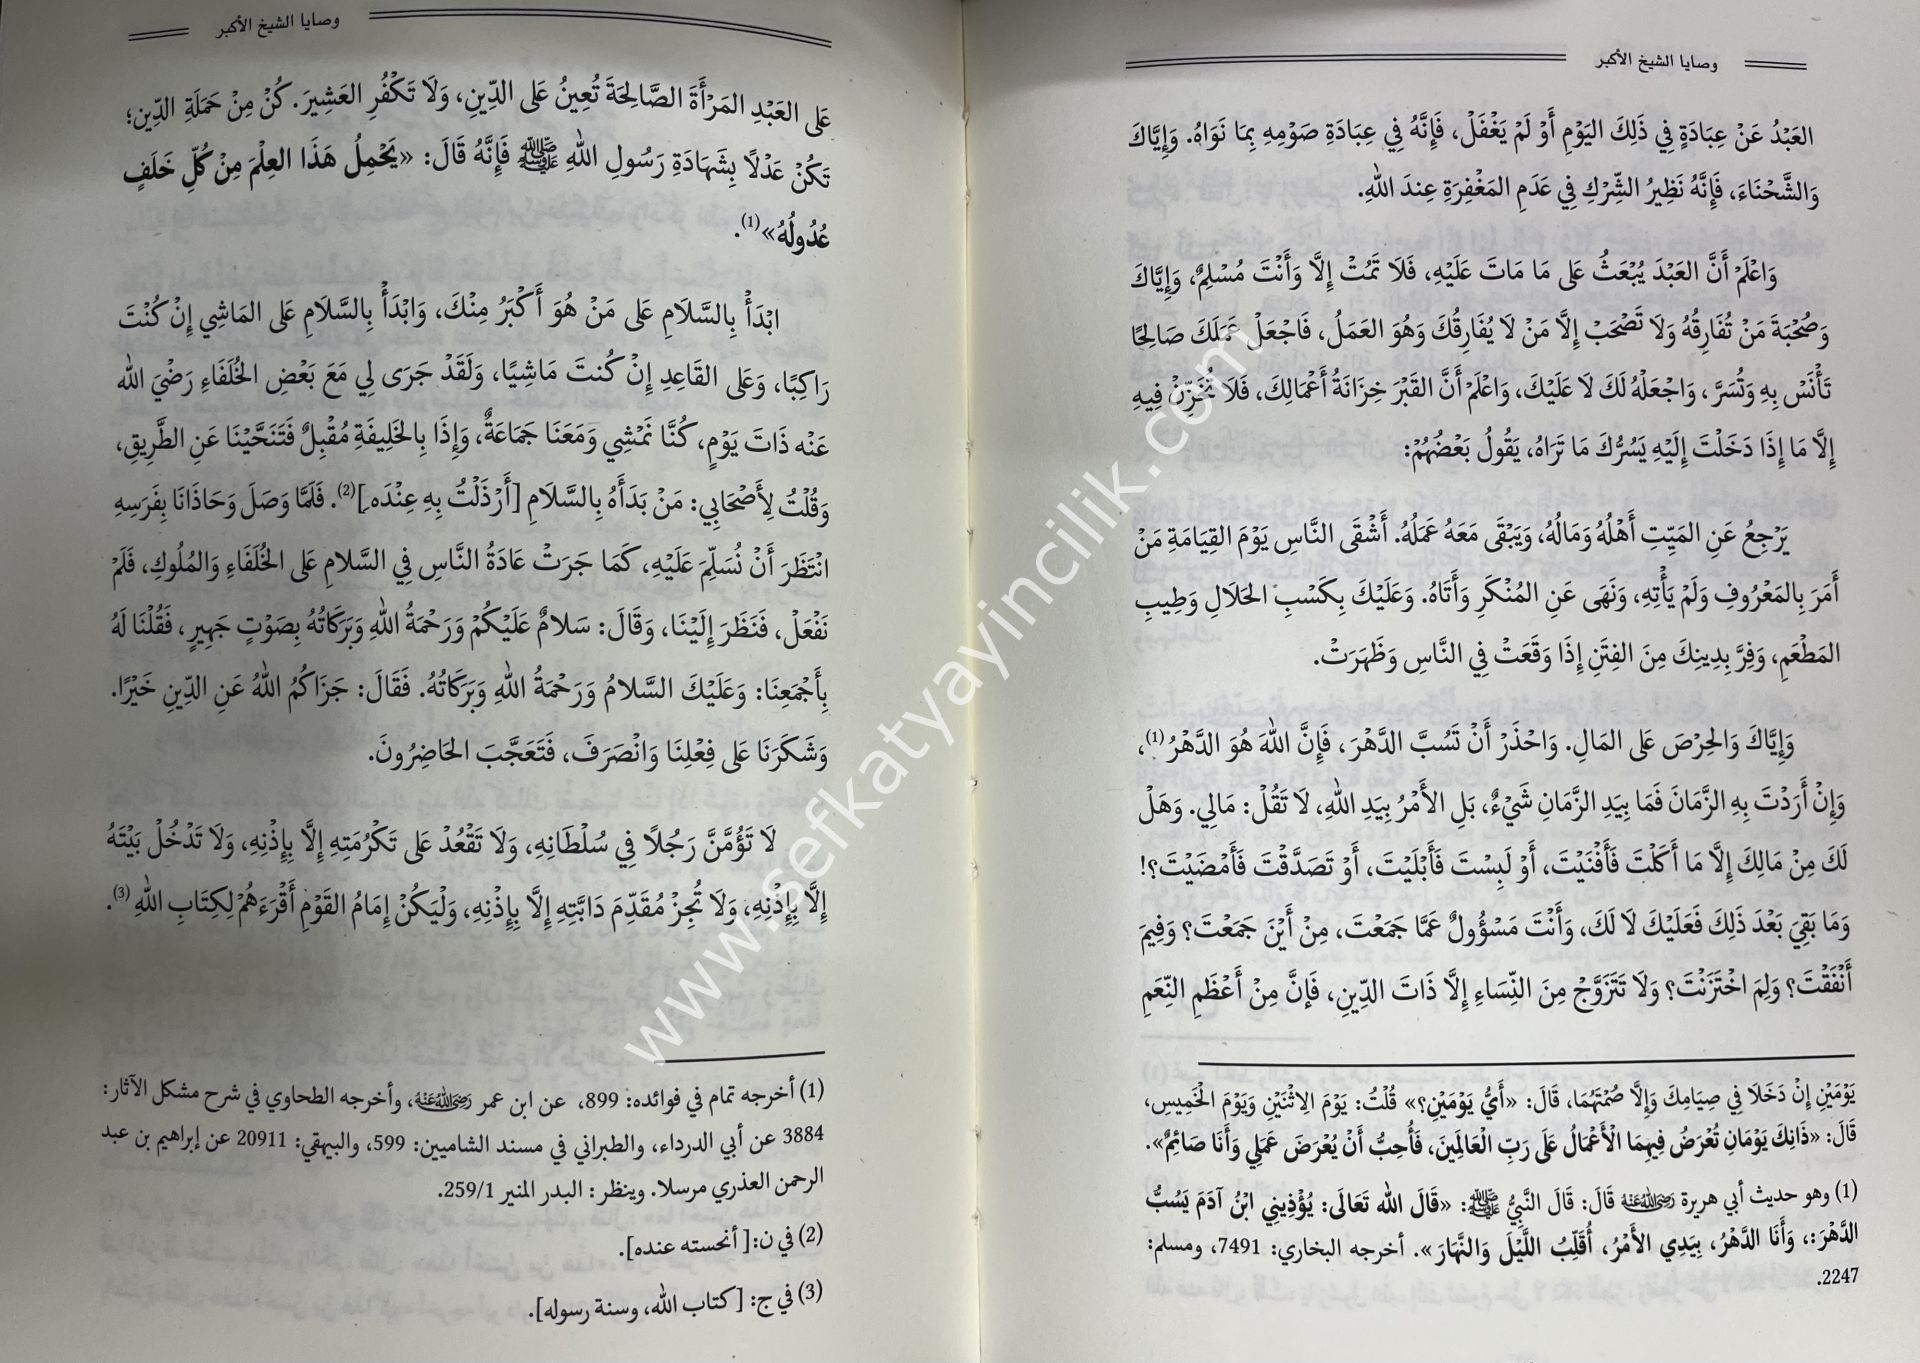 وصايا الشيخ الأكبر
العَبْدُ عَنْ عِبَادَةٍ فِي ذَلِكَ اليَوْمِ أَوْ لَمْ يَغْفَلْ، فَإِنَّهُ فِي عِبَادَةِ صَوْمِهِ بِمَا نَوَاهُ. وَإِيَّاكَ
وَالشَّحْنَاءَ، فَإِنَّهُ نَظِيرُ الشِّرْكِ فِي عَدَمِ المَغْفِرَةِ عِندَ اللهِ.
وَاعْلَمْ أَنَّ العَبْدَ يُبْعَثُ عَلى مَا مَاتَ عَلَيْهِ، فَلَا تَمُتْ إِلَّا وَأَنْتَ مُسْلِمٌ، وَإِيَّاكَ
وَصُحْبَةَ مَنْ تُفَارِقُهُ وَلَا تَصْحَبْ إِلَّا مَنْ لَا يُفَارِقُكَ وَهُوَ العَمَلُ، فَاجْعَلْ عَمَلَكَ صَالِحًا
تَأْنَسْ بِهِ وَتُسَرَّ، وَاجْعَلْهُ لَكَ لَا عَلَيْكَ، وَاعْلَمْ أَنَّ القَبْرَ خِزَانَةُ أَعْمَالِكَ، فَلَا تُخَزِّنْ فِيهِ
إِلَّا مَا إِذَا دَخَلْتَ إِلَيْهِ يَسُرُّكَ مَا تَرَاهُ، يَقُولُ بَعْضُهُمْ:
يَرْجِعُ عَنِ المَيِّتِ أَهْلُهُ وَمَالُهُ، وَيَبْقَى مَعَهُ عَمَلُهُ. أَشْقَى النَّاسِ يَوْمَ القِيَامَةِ مَنْ
أَمَرَ بِالمَعْرُوفِ وَلَمْ يَأْتِهِ، وَنَهَى عَنِ المُنْكَرِ وَأَتَاهُ. وَعَلَيْكَ بِكَسْبِ الحَلَالِ وَطِيبِ
المَطْعَمِ، وَفِرَّ بِدِينِكَ مِنَ الفِتَنِ إِذَا وَقَعَتْ فِي النَّاسِ وَظَهَرَتْ.
وَإِيَّاكَ وَالحِرْصَ عَلى المَالِ. وَاحْذَرْ أَنْ تَسُبَّ الدَّهْرَ، فَإِنَّ اللهَ هُوَ الدَّهْرُ(1)،
وَإِنْ أَرَدْتَ بِهِ الزَّمَانَ فَمَا بِيَدِ الزَّمَانِ شَيْءٌ، بَلِ الأَمْرُ بِيَدِ اللهِ، لَا تَقُلْ: مَالِي. وَهَلْ
لَكَ مِنْ مَالِكَ إِلَّا مَا أَكَلْتَ فَأَفْنَيْتَ، أَوْ لَبِسْتَ فَأَبْلَيْتَ، أَوْ تَصَدَّقْتَ فَأَمْضَيْتَ؟!
وَمَا بَقِيَ بَعْدَ ذَلِكَ فَعَلَيْكَ لَا لَكَ، وَأَنْتَ مَسْؤُولٌ عَمَّا جَمَعْتَ، مِنْ أَيْنَ جَمَعْتَ؟ وَفِيمَ
أَنْفَقْتَ؟ وَلِمَ اخْتَزَنْتَ؟ وَلَا تَتَزَوَّجْ مِنَ النِّسَاءِ إِلَّا ذَاتَ الدِّينِ، فَإِنَّ مِنْ أَعْظَمِ النِّعَمِ
يَوْمَيْنِ إِنْ دَخَلَا فِي صِيَامِكَ وَإِلَّا صُمْتَهُمَا، قَالَ: «أَيُّ يَوْمَيْنِ؟» قُلْتُ: يَوْمَ الِاثْنَيْنِ وَيَوْمَ الْخَمِيسِ،
قَالَ: «ذَانِكَ يَوْمَانِ تُعْرَضُ فِيهِمَا الْأَعْمَالُ عَلَى رَبِّ الْعَالَمِينَ، فَأُحِبُّ أَنْ يُعْرَضَ عَمَلِي وَأَنَا صَائِمٌ».
(1) وهو حديث أبي هريرة رضي الله عنه قَالَ: قَالَ النَّبِيُّ ﷺ: «قَالَ الله تَعَالَى: يُؤْذِينِي ابْنُ آدَمَ يَسُبُّ
الدَّهْرَ:، وَأَنَا الدَّهْرُ، بِيَدِي الأَمْرُ، أُقَلِّبُ اللَّيْلَ وَالنَّهَارَ ». أخرجه البخاري: 7491، ومسلم:
2247.
وصايا الشيخ الأكبر
عَلى العَبْدِ المَرْأَةَ الصَّالِحَةَ تُعِينُ عَلى الدِّينِ، وَلَا تَكْفُرِ العَشِيرَ. كُنْ مِنْ حَمَلَةِ الدِّينِ؛
تَكُنْ عَدْلًا بِشَهَادَةِ رَسُولِ اللهِ ﷺ فَإِنَّهُ قَالَ: «يَحْمِلُ هَذَا العِلْمَ مِنْ كُلِّ خَلَفٍ
عُدُولُهُ»(1).
ابْدَأْ بِالسَّلَامِ عَلى مَنْ هُوَ أَكْبَرُ مِنْكَ، وَابْدَأْ بِالسَّلَامِ عَلى المَاشِي إِنْ كُنْتَ
رَاكِبًا، وَعَلى القَاعِدِ إِنْ كُنتَ مَاشِيًا، وَلَقَدْ جَرَى لِي مَعَ بَعْضِ الخُلَفَاءِ رَضْيَ الله
عَنْه ذَاتَ يَوْمٍ، كُنَّا نَمْشِي وَمَعَنَا جَمَاعَةٌ، وَإِذَا بِالخَلِيفَةِ مُقْبِلٌ فَتَنَحَّيْنَا عَنِ الطَّرِيقِ،
وَقُلْتُ لِأَصْحَابِي: مَنْ بَدَأَهُ بِالسَّلَامِ [أَرْذَلْتُ بِهِ عِنْدَه](2). فَلَمَّا وَصَلَ وَحَاذَانَا بِفَرَسِهِ
انْتَظَرَ أَنْ نُسَلِّمَ عَلَيْهِ، كَمَا جَرَتْ عَادَةُ النَّاسِ فِي السَّلَامِ عَلى الخُلَفَاءِ وَالمُلُوكِ، فَلَمْ
نَفْعَلْ، فَنَظَرَ إِلَيْنَا، وَقَالَ: سَلَامٌ عَلَيْكُمْ وَرَحْمَةُ اللهِ وَبَرَكَاتُهُ بِصَوْتٍ جَهِيرٍ، فَقُلْنَا لَهُ
بِأَجْمَعِنَا: وَعَلَيْكَ السَّلَامُ وَرَحْمَةُ اللهِ وَبَرَكَاتُهُ. فَقَالَ: جَزَاكُمُ اللهُ عَنِ الدِّينِ خَيْرًا.
وَشَكَرَنَا عَلى فِعْلِنَا وَانْصَرَفَ، فَتَعَجَّبَ الحَاضِرُونَ.
لَا تَؤُمَّنَّ رَجُلًا فِي سُلْطَانِهِ، وَلَا تَقْعُدْ عَلى تَكْرُمَتِهِ إِلَّا بِإِذْنِهِ، وَلَا تَدْخُلْ بَيْتَهُ
إِلَّا بِإِذْنِهِ، وَلَا تُجِزْ مُقَدِّمَ دَابَّتِهِ إِلَّا بِإِذْنِهِ، وَلْيَكُنْ إِمَامُ القَوْمِ أَقْرَءَهُمْ لِكِتَابِ اللهِ(3).
(1) أخرجه تمام في فوائده: 899، عن ابن عمر رضي الله عنه، وأخرجه الطحاوي في شرح مشكل الآثار:
3884 عن أبي الدرداء، والطبراني في مسند الشاميين: 599، والبيهقي: 20911 عن إبراهيم بن عبد
الرحمن العذري مرسلا. وينظر: البدر المنير 259/1.
(2) في ن:[ أنحسته عنده].
(3) في ج: [كتاب الله، وسنة رسوله].
www.sefkatyayincilik.com